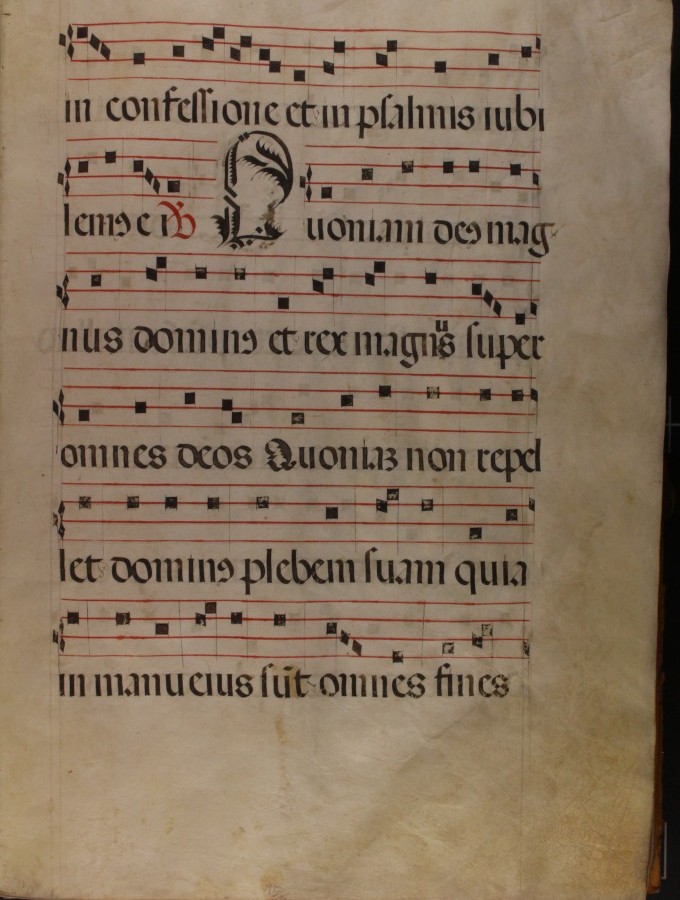 in confessione et in psalmis iubi
lemꝰ e i ℣ Quoniam deꝰ mag
nus dominꝰ et rex magnꝰ̈ super
omnes deos Quoniaꝫ non repel
let dominꝰ plebem suam quia
in manu eius sūt omnes fines